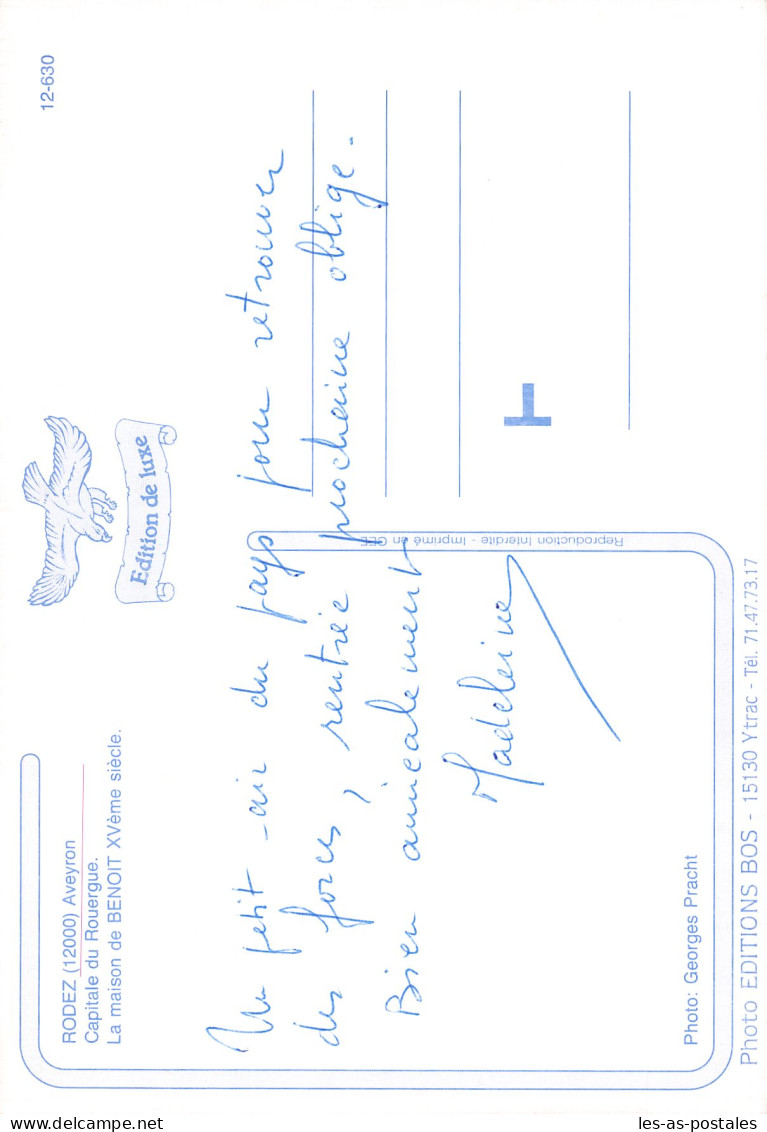 RODEZ (12000) Aveyron
Capitale du Rouergue.
La maison de BENOIT XVème siècle.
12-630
Edition de luxe
Un petit air du pays pour retrouver
des forces, rentrée prochaine oblige.
Bien amicalement
Madeleine
Reproduction Interdite - Imprimé en CEE
Photo: Georges Pracht
Photo EDITIONS BOS - 15130 Ytrac - Tél. 71.47.73.17
delcampe.net
les-as-postales